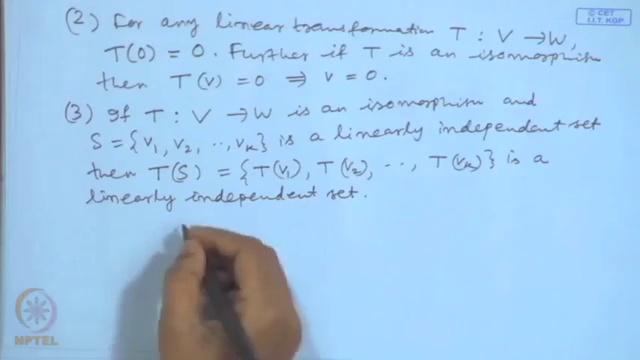 © CET
I.I.T. KGP
(2) For any linear transformation T : V → W,
T(0) = 0. Further if T is an isomorphism
then T(v) = 0 ⟹ v = 0.
(3) If T : V → W is an isomorphism and
S = {v₁, v₂, ··, vₖ} is a linearly independent set
then T(S) = {T(v₁), T(v₂), ··, T(vₖ)} is a
linearly independent set.
NPTEL